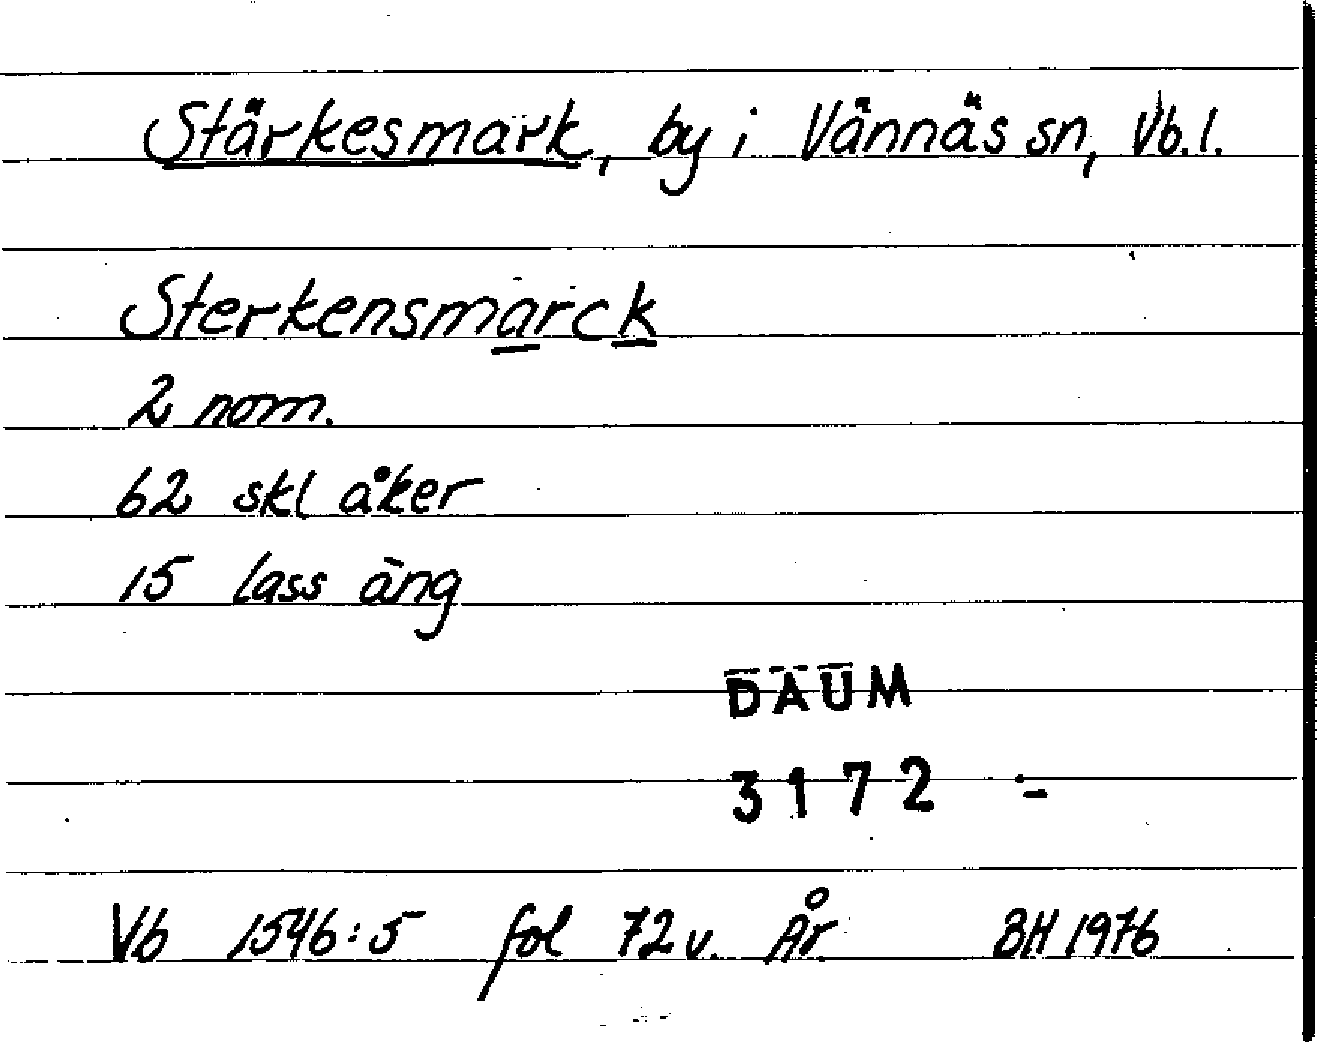 Stärkesmark, by i Vännäs sn, Vb.l.
Sterkensmarck
2 nom.
62 skl åker
15 lass äng
DAUM
3172 :-
Vb 1546:5 fol 72v. År. BH 1976